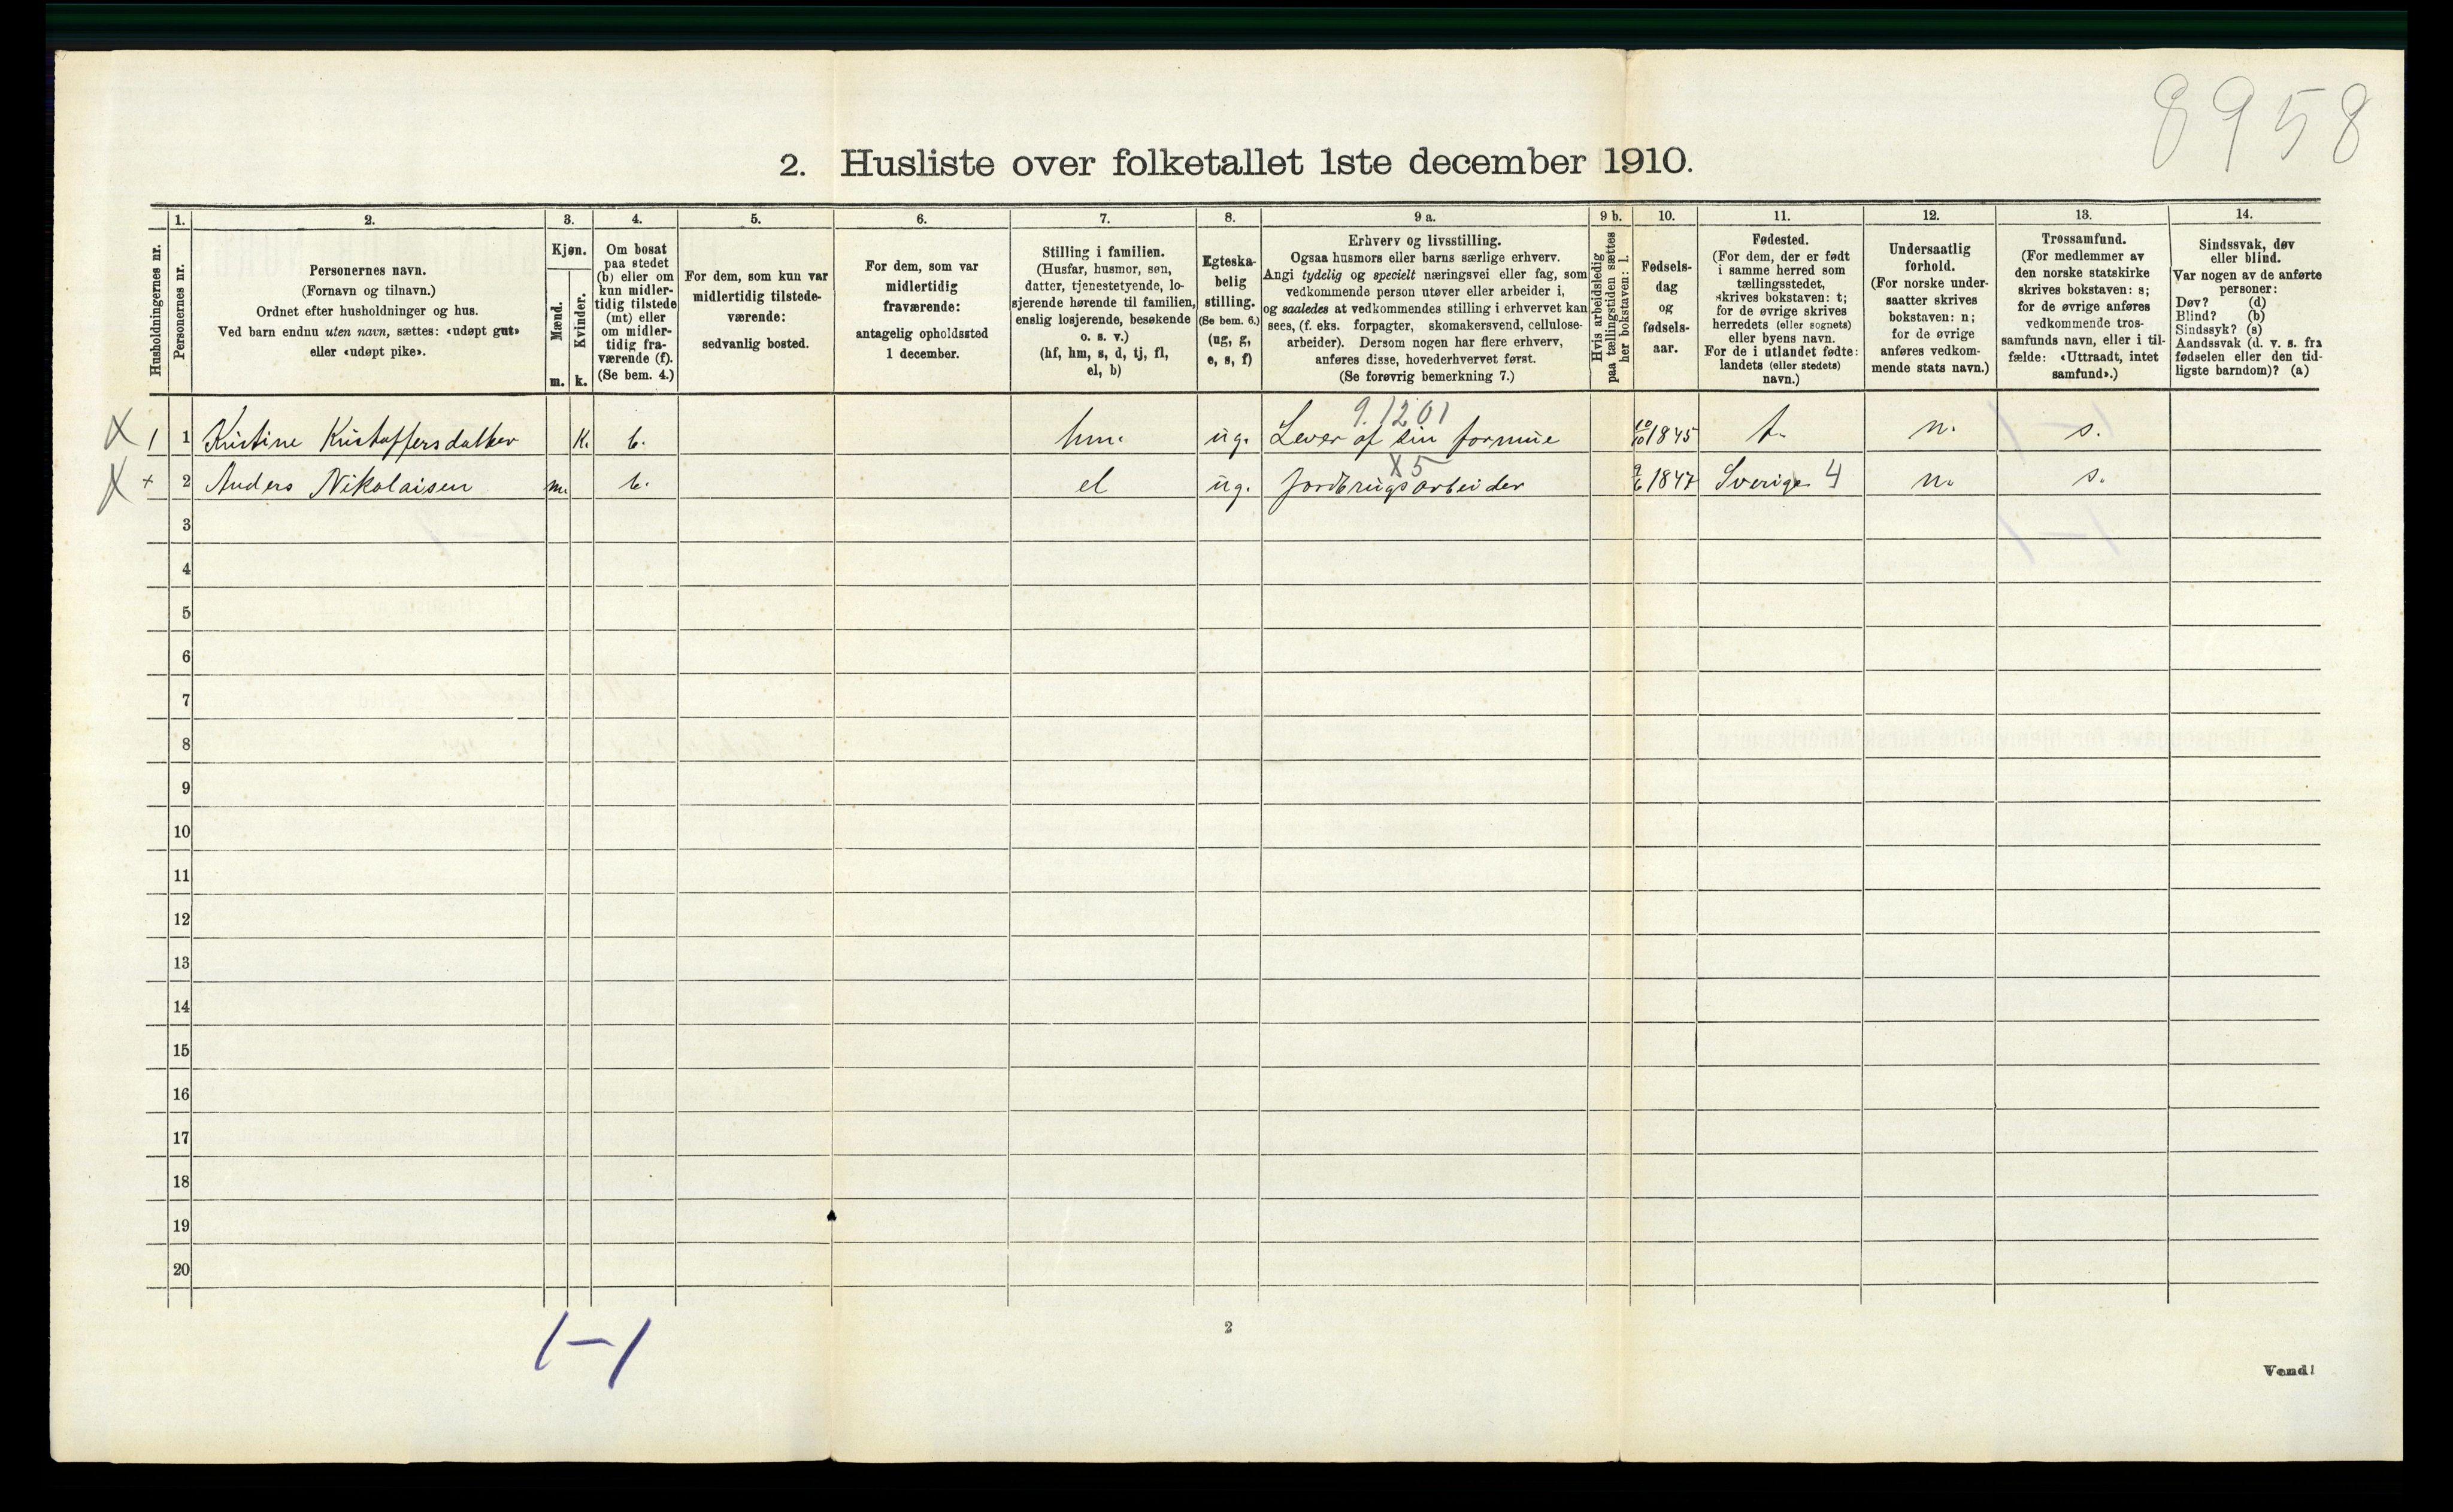 8958
2. Husliste over folketallet 1ste december 1910.
Husholdningernes nr.
1.
Personernes nr.
2.
Personernes navn.
(Fornavn og tilnavn.)
Ordnet efter husholdninger og hus.
Ved barn endnu uten navn, sættes: «udøpt gut»
eller «udøpt pike».
3.
Kjøn.
Mænd.
Kvinder.
m. k.
4.
Om bosat
paa stedet
(b) eller om
kun midler-
tidig tilstede
(mt) eller
om midler-
tidig fra-
værende (f).
(Se bem. 4.)
5.
For dem, som kun var
midlertidig tilstede-
værende:
sedvanlig bosted.
6.
For dem, som var
midlertidig
fraværende:
antagelig opholdssted
1 december.
7.
Stilling i familien.
(Husfar, husmor, søn,
datter, tjenestetyende, lo-
sjerende hørende til familien,
enslig losjerende, besøkende
o. s. v.)
(hf, hm, s, d, tj, fl,
el, b)
8.
Egteska-
belig
stilling.
(Se bem. 6.)
(ug, g,
e, s, f)
9 a.
Erhverv og livsstilling.
Ogsaa husmors eller barns særlige erhverv.
Angi tydelig og specielt næringsvei eller fag, som
vedkommende person utøver eller arbeider i,
og saaledes at vedkommendes stilling i erhvervet kan
sees, (f. eks. forpagter, skomakersvend, cellulose-
arbeider). Dersom nogen har flere erhverv,
anføres disse, hovederhvervet først.
(Se forøvrig bemerkning 7.)
9 b.
Hvis arbeidsledig
paa tællingstiden sættes
her bokstaven: l.
10.
Fødsels-
dag
og
fødsels-
aar.
11.
Fødested.
(For dem, der er født
i samme herred som
tællingsstedet,
skrives bokstaven: t;
for de øvrige skrives
herredets (eller sognets)
eller byens navn.
For de i utlandet fødte:
landets (eller stedets)
navn.)
12.
Undersaatlig
forhold.
(For norske under-
saatter skrives
bokstaven: n;
for de øvrige
anføres vedkom-
mende stats navn.)
13.
Trossamfund.
(For medlemmer av
den norske statskirke
skrives bokstaven: s;
for de øvrige anføres
vedkommende tros-
samfunds navn, eller i til-
fælde: «Uttraadt, intet
samfund».)
14.
Sindssvak, døv
eller blind.
Var nogen av de anførte
personer:
Døv? (d)
Blind? (b)
Sindssyk? (s)
Aandssvak (d. v. s. fra
fødselen eller den tid-
ligste barndom)? (a)
9.1201
X 1 1 Kristine Kristoffersdatter K. b. hm. ug. Lever af sin formue 10/10 1845 t. n. s.
X5
X + 2 Anders Nikolaisen m. b. el ug. Jordbrugsarbeider 9/6 1847 Sverige 4 n. s.
3
4
5
6
7
8
9
10
11
12
13
14
15
16
17
18
19
20
1–1
2
Vend!